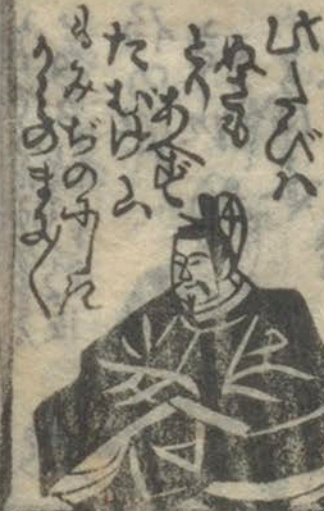 此たびハ
ぬさも
とり
あへず
たむけ山
もみぢのにしき
かみのまに〱